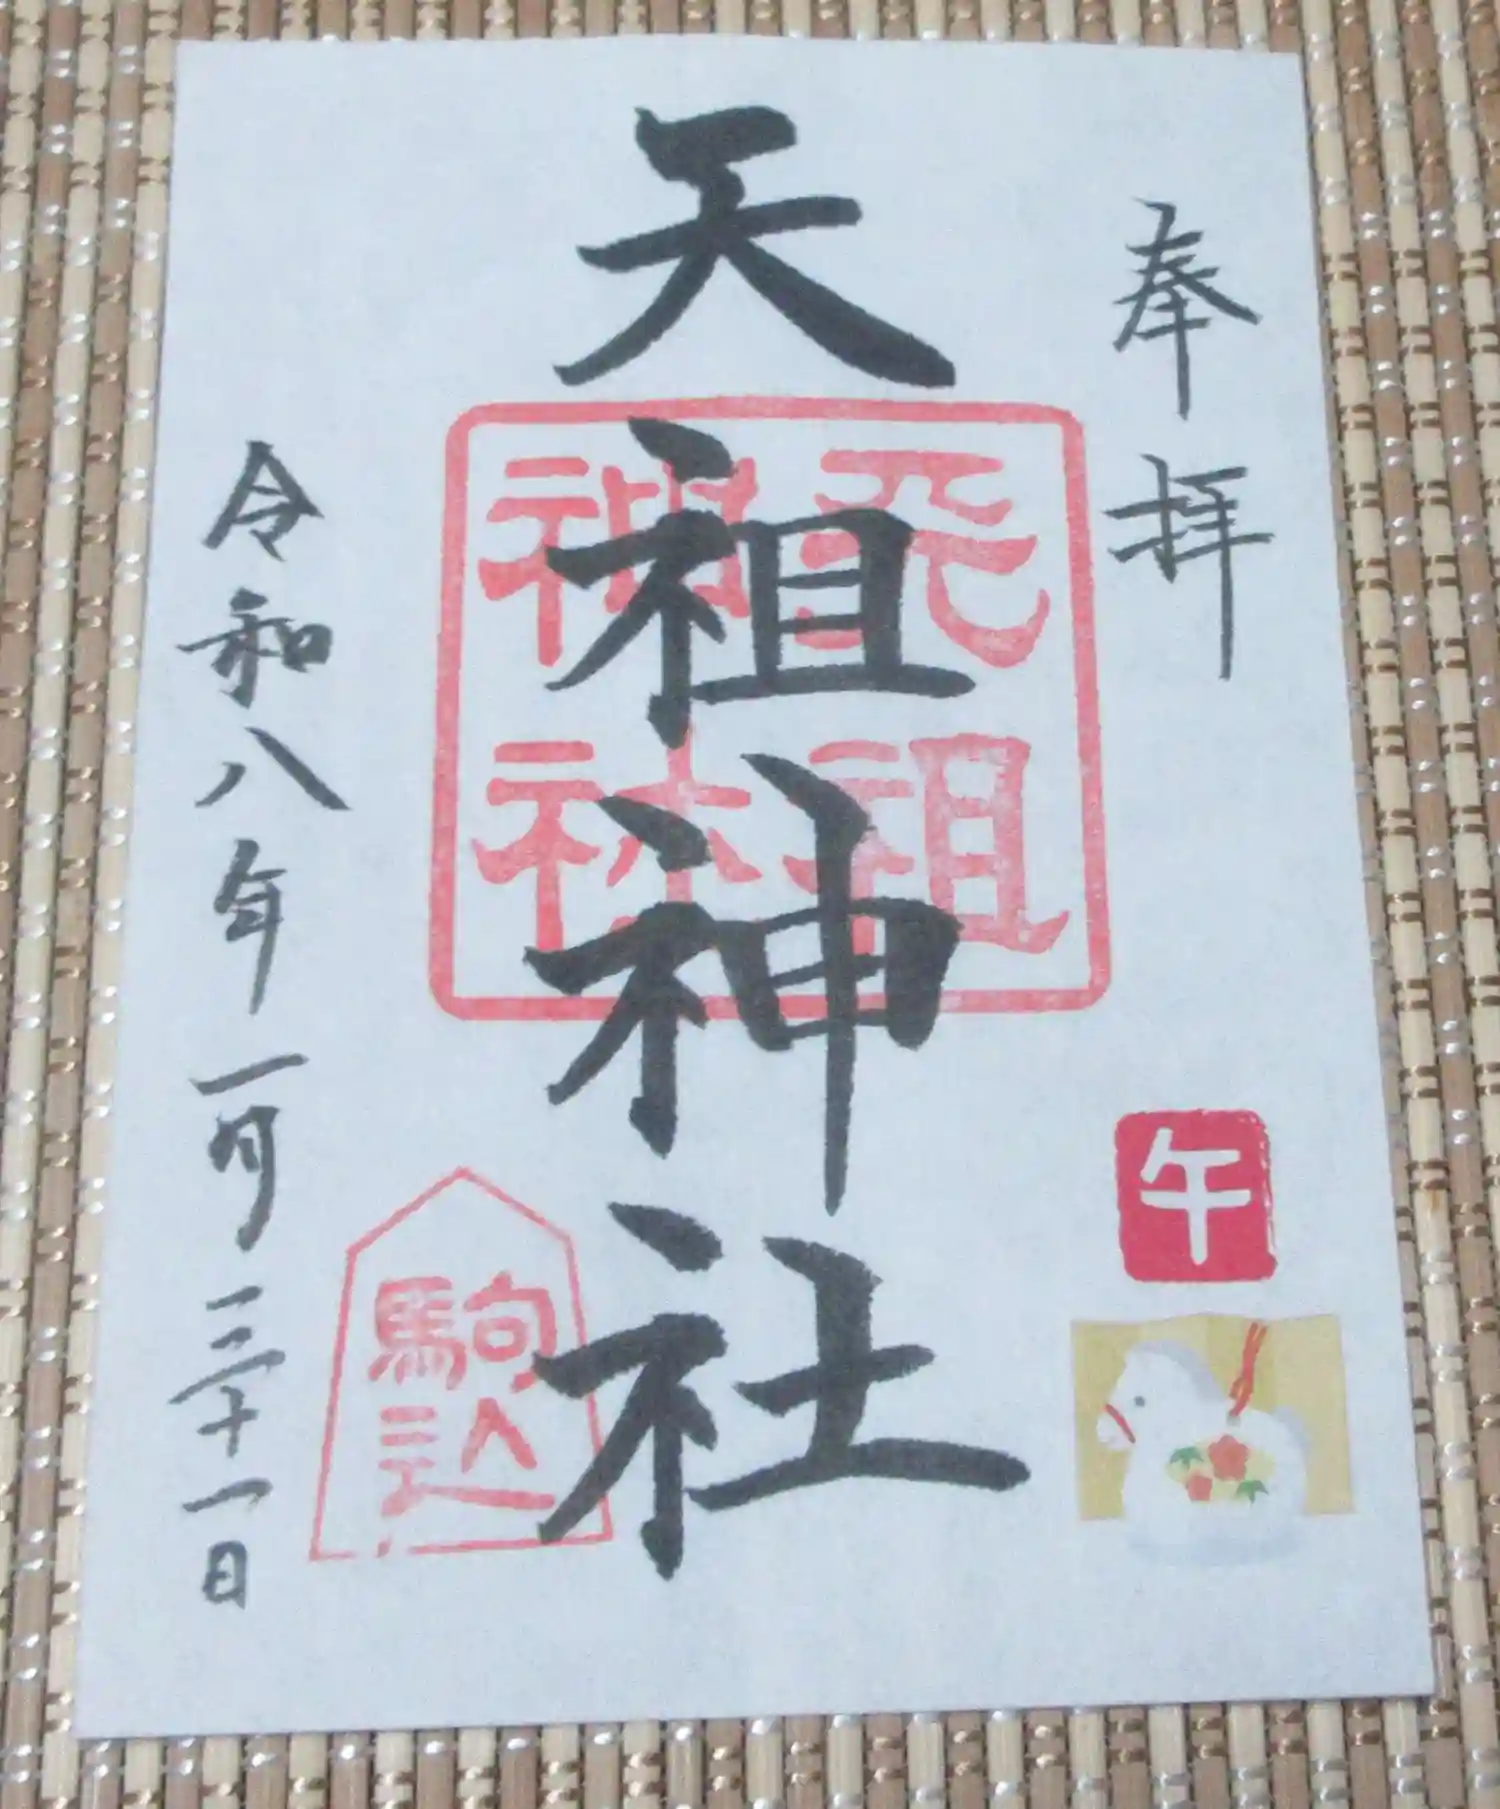 奉拝
天祖神社
兂祖
神社
午
駒込
令和八年一月三十一日